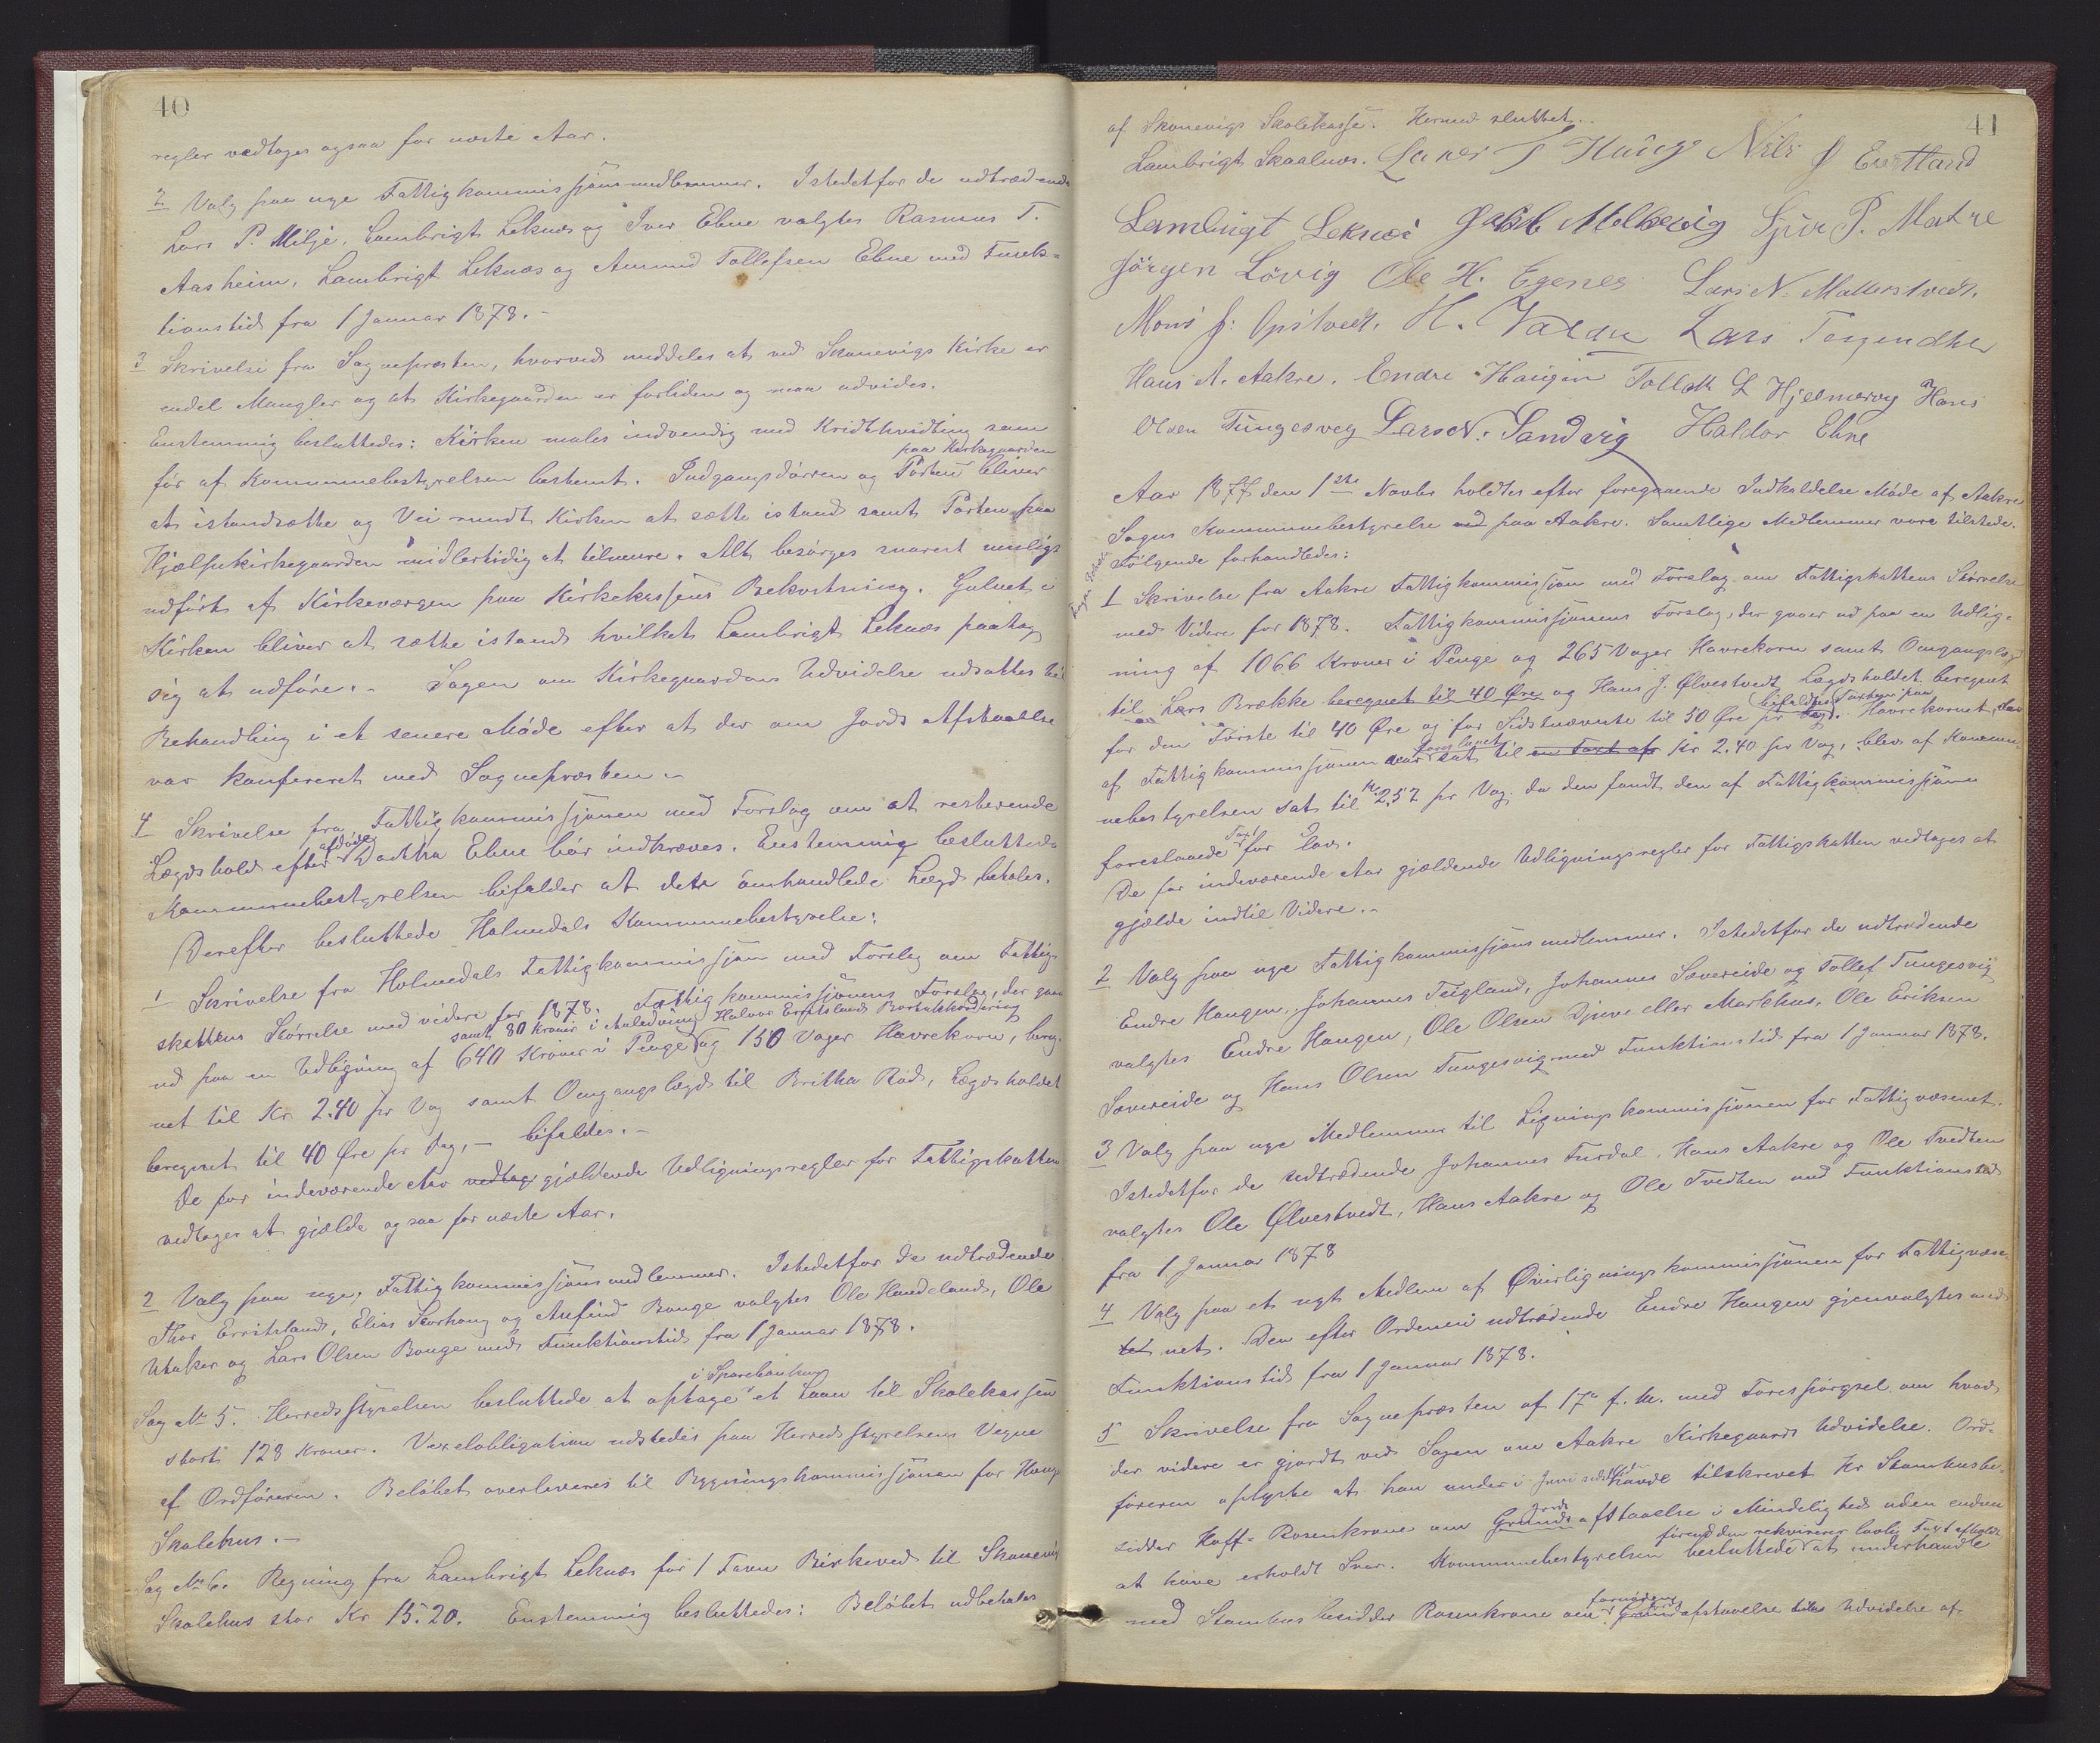 40
regler vedtages ogsaa for næste Aar.
2 Valg paa nye Fattigkommissjonsmedlemmer. Istedetfor de udtrædende
Lars P. Milje, Lambrigt Leknæs og Iver Ebne valgtes Rasmus T.
Aasheim, Lambrigt Leknæs og Amund Tollefsen Ebne med Funk-
tionstid fra 1 Januar 1878.-
3 Skrivelse fra Sognepræsten, hvorved meddeles at ved Skonevigs Kirke er
endel Mangler og at Kirkegaarden er forliden og maa udvides.
Enstemmig besluttedes: Kirken males indvendig med Kridthvidting som
paa Kirkegaarden
før af Kommunebestyrelsen bestemt. Indgangsdørren og Porten bliver
at istandsætte og Vei rundt Kirken at sætte istand samt Porten paa
Hjælpekirkegaarden midlertidig at tilmure. Alt besørges snarest muligt
udført af Kirkeværgen paa Kirkekassens Bekostning. Gulvet i
Kirken bliver at sætte istand hvilket Lambrigt Leknæs paatog
sig at udføre.- Sagen om Kirkegaardens Udvidelse udsattes til
Behandling i et senere Møde efter at der om Jords Afstaaelse
var konfereret med Sognepræsten.-
4 Skrivelse fra Fattigkommissjonen med Forslag om at resterende
afdøde
Lægdshold efter Dorthea Ebne bør indkræves. Enstemmig besluttedes
Kommunebestyrelsen bifalder at dette omhandlede Lægd betales.
Derefter besluttede Holmedals Kommunebestyrelse:
1 Skrivelse fra Holmedals Fattigkommissjon med Forslag om Fattig-
skattens Størrelse med videre for 1878. Fattigkommissjonens Forslag, der gaar
samt 80 Kroner i Anledning Halvor Erritslands
ud paa en Udligning af 640 Kroner i Penge og 150 Vager Havrekorn, bereg-
net til Kr 2.40 pr Vog samt Omgangslægd til Britha Rød, Lægdsholdet
beregnet til 40 Øre pr Dag, - bifaldes.-
De for indeværende Aar vedtag gjældende Udligningsregler for Fattigskatten
vedtages at gjælde ogsaa for næste Aar.
2 Valg paa nye Fattigkommissjonsmedlemmer. Istedetfor de udtrædende
Thor Erritsland, Elias Skorhaug og Anfind Bauge valgtes Ole Handeland, Ole
Utaker og Lars Olsen Bauge med Funktionstid fra 1 Januar 1878.
i Sparebanken
Sag No 5. Herredsstyrelsen besluttede at optage et Laan til Skolekassen
stort 128 Kroner. Vexelobligation udstedes paa Herredsstyrelsens Vegne
af Ordføreren. Beløbet overleveres til Bygningskommissjonen for Hauge
Skolehus.-
Sag No 6. Regning fra Lambrigt Leknæs for 1 Favn Birkeved til Skonevig
Skolehus stor Kr 15.20. Enstemmig besluttedes: Beløbet udbetales
41
af Skonevigs Skolekasse. Hermed sluttet.
Lambrigt Skaalnes. Haug Nils J Evertland
Lambrigt Leknæs Jakob Molkevig Sjur P. Matre
Jörgen Lövig Ole H. Egenes Lars N. Mattersstvedt.
Mons J: Opstvedt. H. Valen Lars Teigendhl
Hans A. Aakre. Endre Haugen Tollak L Hjelmevoy Hans
Olsen Tungesveg Lars N. Sandvig Haldor Ebne
Aar 1877 den 1ste Novbr holdtes efter foregaaende Indkaldelse Møde af Aakre
Sogns Kommunebestyrelse ved paa Aakre. Samtlige Medlemmer vare tilstede.
Følgende forhandledes:
1 Skrivelse fra Aakre Fattigkommissjon med Forslag om Fattigskattens Størrelse
med Videre for 1878. Fattigkommissjonens Forslag, der gaaer ud paa en Udlig-
ning af 1066 Kroner i Penge og 265 Vager Havrekorn samt Omgangslægd
til Lars Brække beregnet til 40 Øre og Hans J. Ølvestvedt Lægdsholdet beregnet
bifaldtes Taxten paa
for den Første til 40 Øre og for Sidstnævnte til 50 Øre pr Dag. Havrekornet, der
foreslaaet
af Fattigkommissjonen var sat til en Taxt af Kr 2.40 pr Vog, blev af Kommu-
nebestyrelsen sat til Kr 2,52 pr Vog, da den fandt den af Fattigkommissjonen
Taxt
foreslaaede for lav.
De for indeværende Aar gjældende Udligningsregler for Fattigskatten vedtages at
gjælde indtil Videre.-
2 Valg paa nye Fattigkommissjonsmedlemmer. Istedetfor de udtrædende
Endre Haugen, Johannes Teigland, Johannes Sævereide og Tollef Tungesvig
valgtes Endre Haugen, Ole Olsen Djuve eller Markhus, Ole Eriksen
Sævereide og Hans Olsen Tungesvig med Funktionstid fra 1 Januar 1878.
3 Valg paa nye Medlemmer til Ligningskommissjonen for Fattigvæsenet.
Istedetfor de udtrædende Johannes Furdal, Hans Aakre og Ole Tvedten
valgtes Ole Ølvestvedt, Hans Aakre og Ole Tvedten med Funktionstid
fra 1 Januar 1878
4 Valg paa et nyt Medlem af Overligningskommissjonen for Fattigvæse-
tet net. Den efter Ordenen udtrædende Endre Haugen gjenvalgtes med
Funktionstid fra 1 Januar 1878.
5 Skrivelse fra Sognepræsten af 17de f. M. med Forespørgsel om hvad
der videre er gjordt ved Sagen om Aakre Kirkegaards Udvidelse. Ord-
føreren oplyste at han under i Juni sidstl. havde tilskrevet Hr Stamhusbe-
Jords
sidder Hoff-Rosenkrone om Grunds afstaaelse i Mindelighed uden endnu
førend den rekvirerer lovlig Taxt afholdt
at have erholdt Svar. Kommunebestyrelsen besluttede at underhandle
fornøden Jords
med Stamhusbesidder Rosenkrone om Grund afstaaelse til Udvidelse af